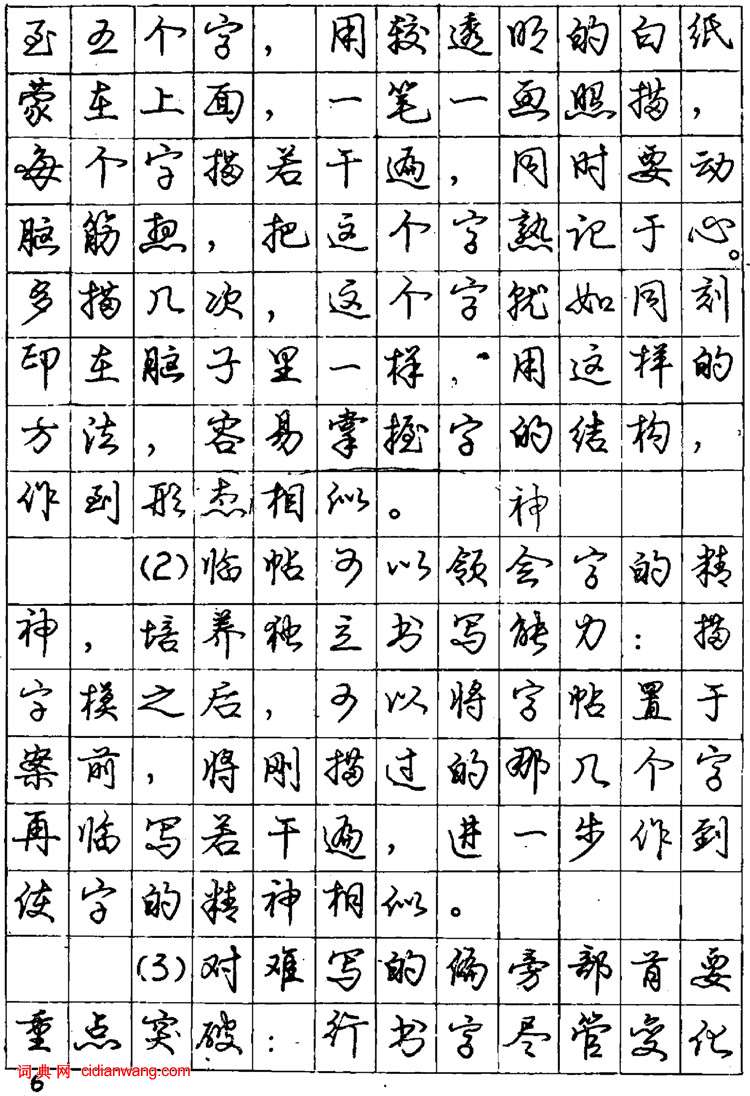 至五个字，用较透明的白纸
蒙在上面，一笔一画照描，
每个字描若干遍，同时要动
脑筋想，把这个字熟记于心。
多描几次，这个字就如同刻
印在脑子里一样，用这样的
方法，容易掌握字的结构，
作到形态相似。 神
(2)临帖可以领会字的精
神，培养独立书写能力：描
字模之后，可以将字帖置于
案前，将刚描过的那几个字
再临写若干遍，进一步作到
使字的精神相似。
(3)对难写的偏旁部首要
重点突破：行书字尽管变化
词典网 cidianwang.com
6